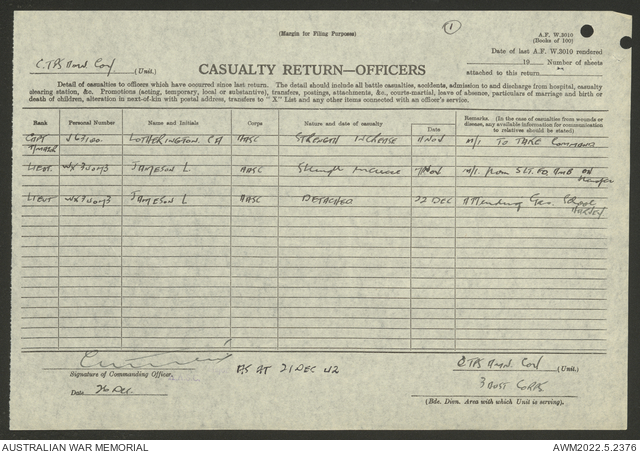 (Margin for Filing Purposes)
1
A.F. W.3010
(Books of 100)
Date of last A.F. W.3010 rendered
19 Number of sheets
attached to this return
C.TPS (Unit.)
CASUALTY RETURN—OFFICERS
Detail of casualties to officers which have occurred since last return. The detail should include all battle casualties, accidents, admission to and discharge from hospital, casualty
clearing station, &c. Promotions (acting, temporary, local or substantive), transfers, postings, attachments, &c., courts-martial, leave of absence, particulars of marriage and birth or
death of children, alteration in next-of-kin with postal address, transfers to "X" List and any other items connected with an officer's service.
Rank Personal Number Name and Initials Corps Nature and date of casualty Date Remarks. (In the case of casualties from wounds or disease, any available information for communication to relatives should be stated.)
CAPT LOTHERINGTON AASC STRENGTH INCREASE NOV M/I TO TAKE COMMAND
LIEUT JAMESON L. AASC Strength increase Nov M/I from AMB on transfer
LIEUT JAMESON L AASC DETACHED 22 DEC Attending School
Signature of Commanding Officer.
Date 26 Dec
AS AT 21 DEC 42
C TPS (Unit.)
3 AUST CORPS
(Bde. Divn. Area with which Unit is serving).
AUSTRALIAN WAR MEMORIAL
AWM2022.5.2376